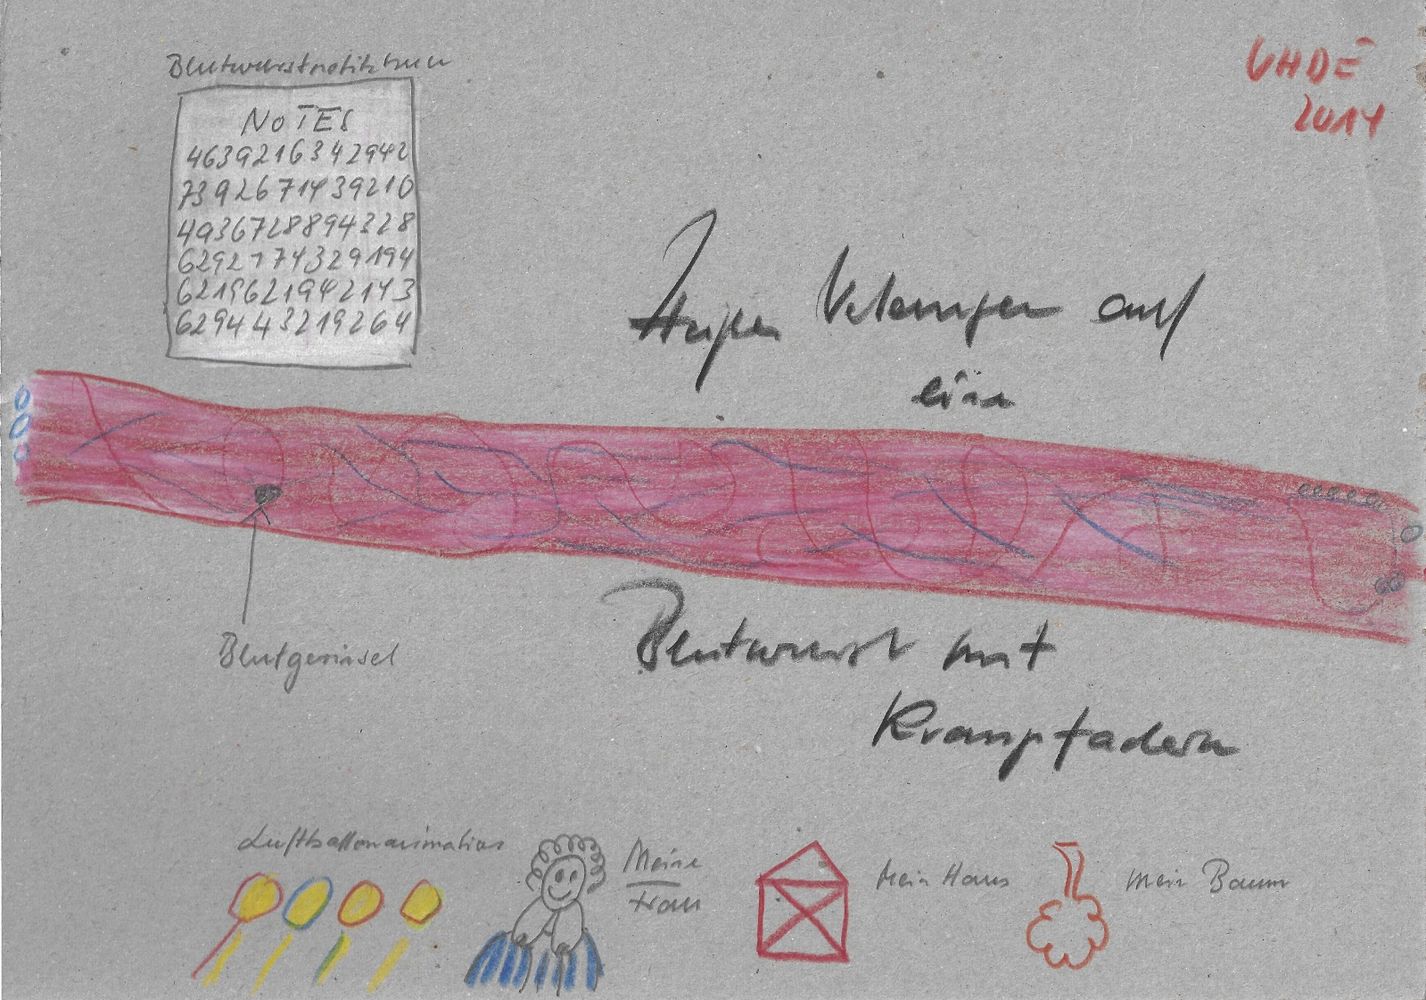 Blutwurstnotizbuch
UHDE
2014
NOTES
4639216342942
7392671439210
4936728894328
6292174329194
6219621942143
6294443219264
auf
eine
Blutgerinsel
Blutwurst mit
Krampfadern
Luftballonanimation
Meine
Frau
Mein Haus
Mein Baum